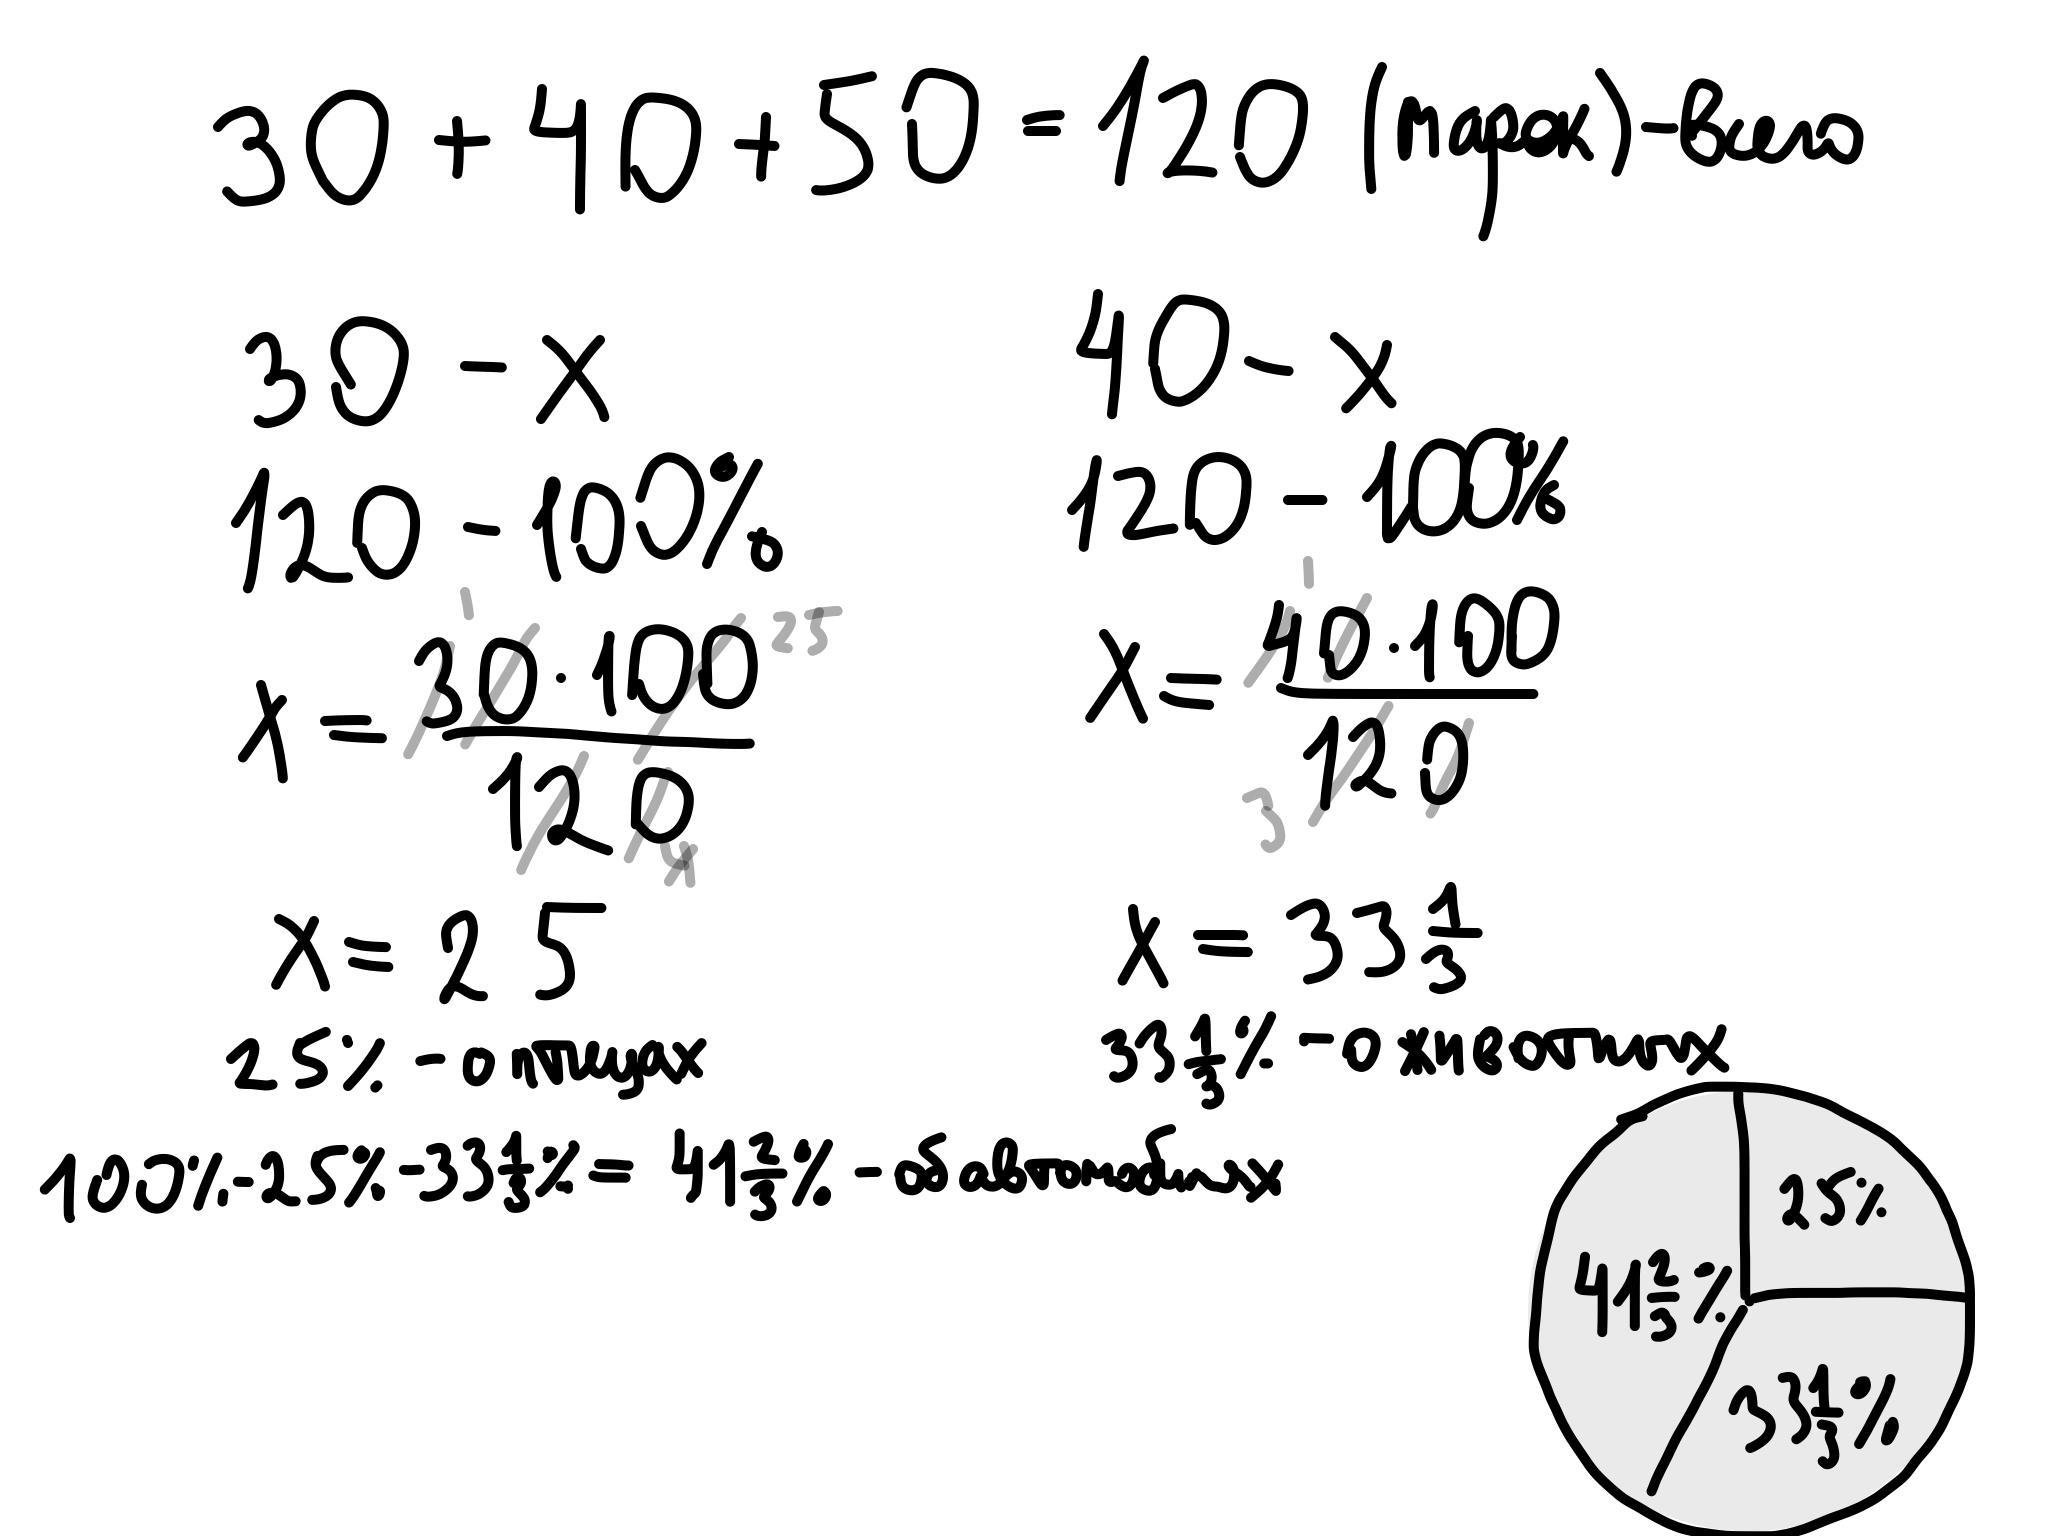 30 + 40 + 50 = 120 (марок) - всего
30 - x
120 - 100%
x = 30 · 100 / 120
1 25
4
x = 25
25% - о птицах
40 - x
120 - 100%
x = 40 · 100 / 120
1
3
x = 33 1/3
33 1/3 % - о животных
100% - 25% - 33 1/3 % = 41 2/3 % - об автомобилях
25%
41 2/3 %
33 1/3 %